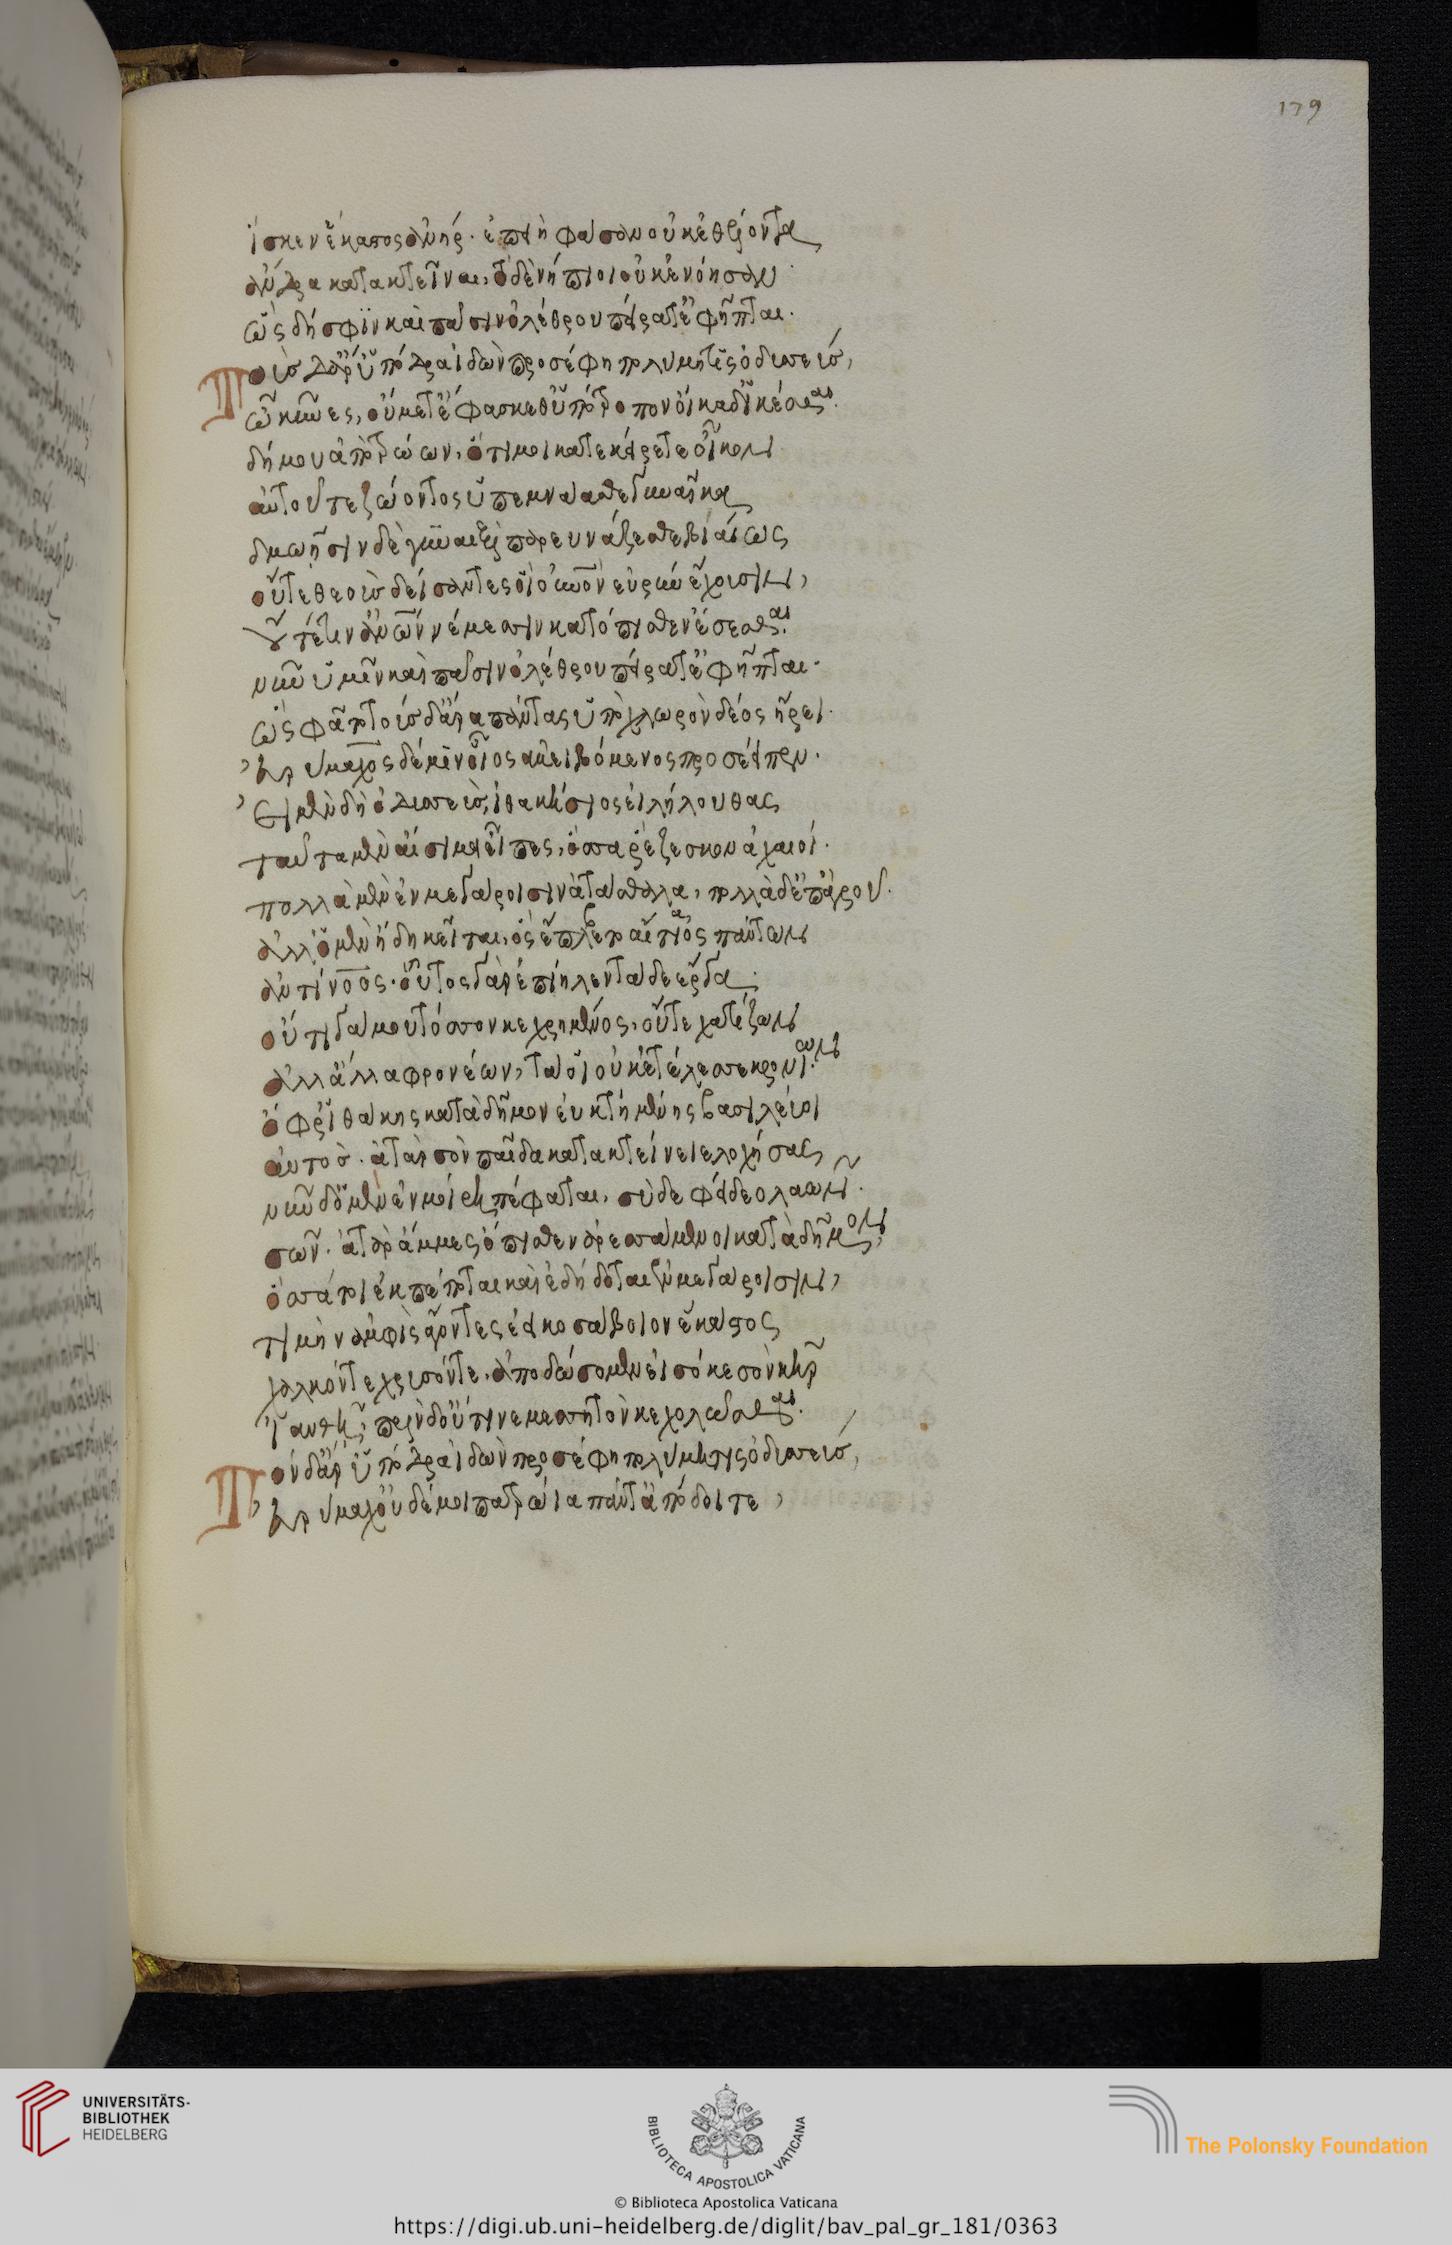 179
ἴσκεν ἕκαστος ἀνήρ. ἐπειὴ φάσαν οὐκ ἐθέλοντα
ἄνδρα κατακτεῖναι, τὸ δὲ νήπιοι οὐκ ἐνόησαν.
ὡς δή σφιν καὶ πᾶσιν ὀλέθρου πείρατ' ἐφῆπται.
Τοὺς δ' ἄρ' ὑπόδρα ἰδὼν προσέφη πολύμητις ὀδυσσεύς,
ὦ κύνες, οὔ μ' ἔτ' ἐφάσκεθ' ὑπότροπον οἴκαδ' ἱκέσθαι.
δήμου ἀπὸ τρώων, ὅτι μοι κατεκείρετε οἶκον
αὐτοῦ τε ζώοντος ὑπεμνάασθε γυναῖκα
δμωῇσιν δὲ γυναιξὶ παρευνάζεσθε βιαίως
οὔτε θεοὺς δείσαντες οἳ οὐρανὸν εὐρὺν ἔχουσιν,
οὔτέ τιν' ἀνθρώπων νέμεσιν κατόπισθεν ἔσεσθαι.
νῦν ὑμῖν καὶ πᾶσιν ὀλέθρου πείρατ' ἐφῆπται.
ὣς φάτο τοὺς δ' ἄρα πάντας ὑπὸ χλωρὸν δέος ᾕρει.
Εὐρύμαχος δέ μιν οἶος ἀμειβόμενος προσέειπεν.
Εἰ μὲν δὴ ὀδυσσεὺς, ἰθακήσιος εἰλήλουθας
ταῦτα μὲν αἴσιμα εἶπες, ὅσσα ῥέζεσκον ἀχαιοί.
πολλὰ μὲν ἐν μεγάροισιν ἀτάσθαλα, πολλὰ δ' ἐπ' ἀγροῦ.
ἀλλ' ὁ μὲν ἤδη κεῖται, ὃς ἔπλετο αἴτιος πάντων
ἀντίνοος. οὗτος γὰρ ἐπίηλεν τάδε ἔργα.
οὔ τι γάμου τόσσον κεχρημένος, οὔτε χατίζων
ἀλλ' ἄλλα φρονέων, τά οἱ οὐκ ἐτέλεσσε κρονίων.
ὄφρ' ἰθάκης κατὰ δῆμον ἐϋκτημένης βασιλεύοι
αὐτός. ἀτὰρ σὸν παῖδα κατακτείνειε λοχήσας
νῦν δ' ὁ μὲν ἐν μοίρῃ πέφαται, σὺ δὲ φείδεο λαῶν.
σῶν. ἀτὰρ ἄμμες ὄπισθεν ἀρεσσάμενοι κατὰ δῆμον,
ὅσσά τοι ἐκπέποται καὶ ἐδήδοται ἐν μεγάροισιν,
τιμὴν ἀμφὶς ἄγοντες ἐεικοσάβοιον ἕκαστος
χαλκόν τε χρυσόν τε. ἀποδώσομεν εἰσόκε σὸν κῆρ
ἰανθῇ, πρὶν δ' οὔ τι νεμεσσητὸν κεχολῶσθαι.
Τὸν δ' ἄρ' ὑπόδρα ἰδὼν προσέφη πολύμητις ὀδυσσεύς,
Εὐρύμαχ' οὐδέ μοι πατρώια πάντ' ἀπόδοιτε,
UNIVERSITÄTS-
BIBLIOTHEK
HEIDELBERG
BIBLIOTECA APOSTOLICA VATICANA
The Polonsky Foundation
© Biblioteca Apostolica Vaticana
https://digi.ub.uni-heidelberg.de/diglit/bav_pal_gr_181/0363